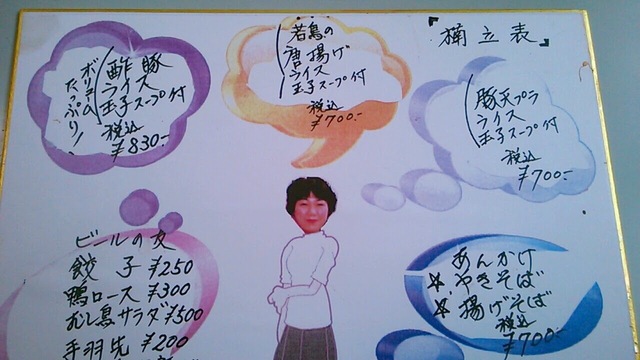 『献立表』
酢豚
ライス
玉子スープ付
ボリューム
たっぷり!
税込
¥830-
若鳥の
唐揚げ
ライス
玉子スープ付
税込
¥700-
豚天プラ
ライス
玉子スープ付
税込
¥700-
ビールの友
餃子 ¥250
鴨ロース ¥300
むし鳥サラダ ¥500
手羽先 ¥200
あんかけ
☆やきそば
☆揚げそば
税込
¥700-